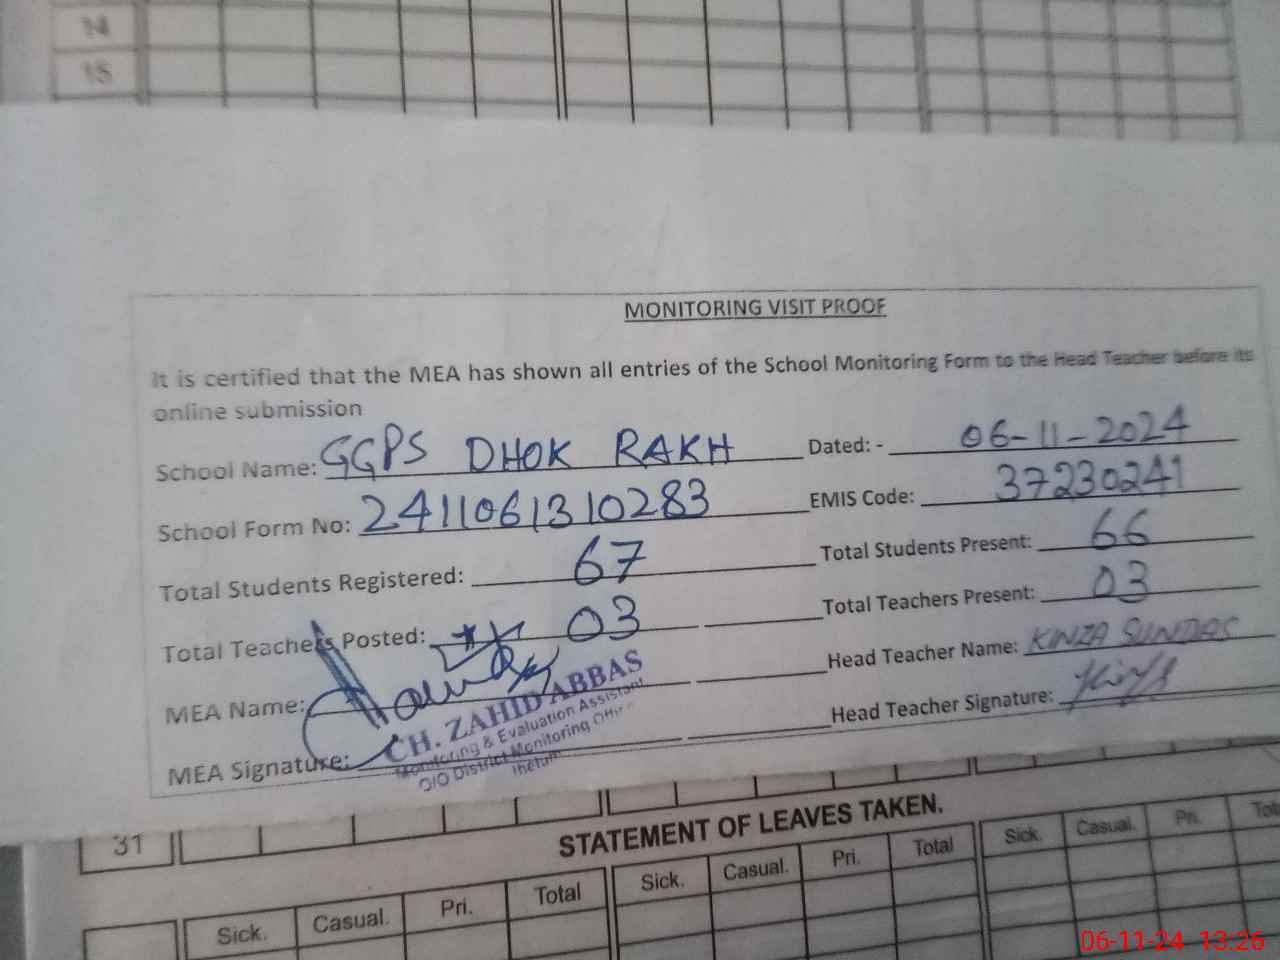 14
15
MONITORING VISIT PROOF
It is certified that the MEA has shown all entries of the School Monitoring Form to the Head Teacher before its
online submission
School Name: GGPS DHOK RAKH Dated: - 06-11-2024
School Form No: 2411061310283 EMIS Code: 37230241
Total Students Registered: 67 Total Students Present: 66
Total Teachers Posted: 03 Total Teachers Present: 03
MEA Name: Head Teacher Name: KINZA SUNDAS
MEA Signature: Head Teacher Signature:
CH. ZAHID ABBAS
Monitoring & Evaluation Assistant
O/O District Monitoring Office
Jhelum
31
STATEMENT OF LEAVES TAKEN.
Sick. Casual. Pri. Total Sick. Casual. Pri. Total Sick. Casual. Pri.
06-11-24 13:26